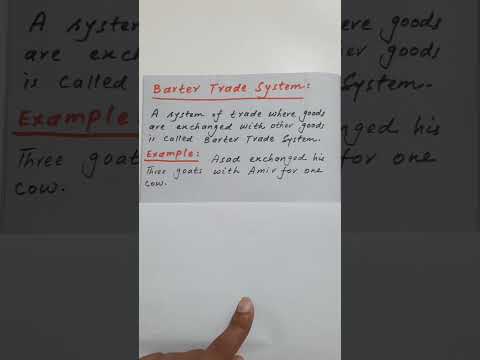 Barter Trade System:
A system of trade where goods
are exchanged with other goods
is called Barter Trade System.
Example: Asad exchanged his
Three goats with Amir for one
cow.